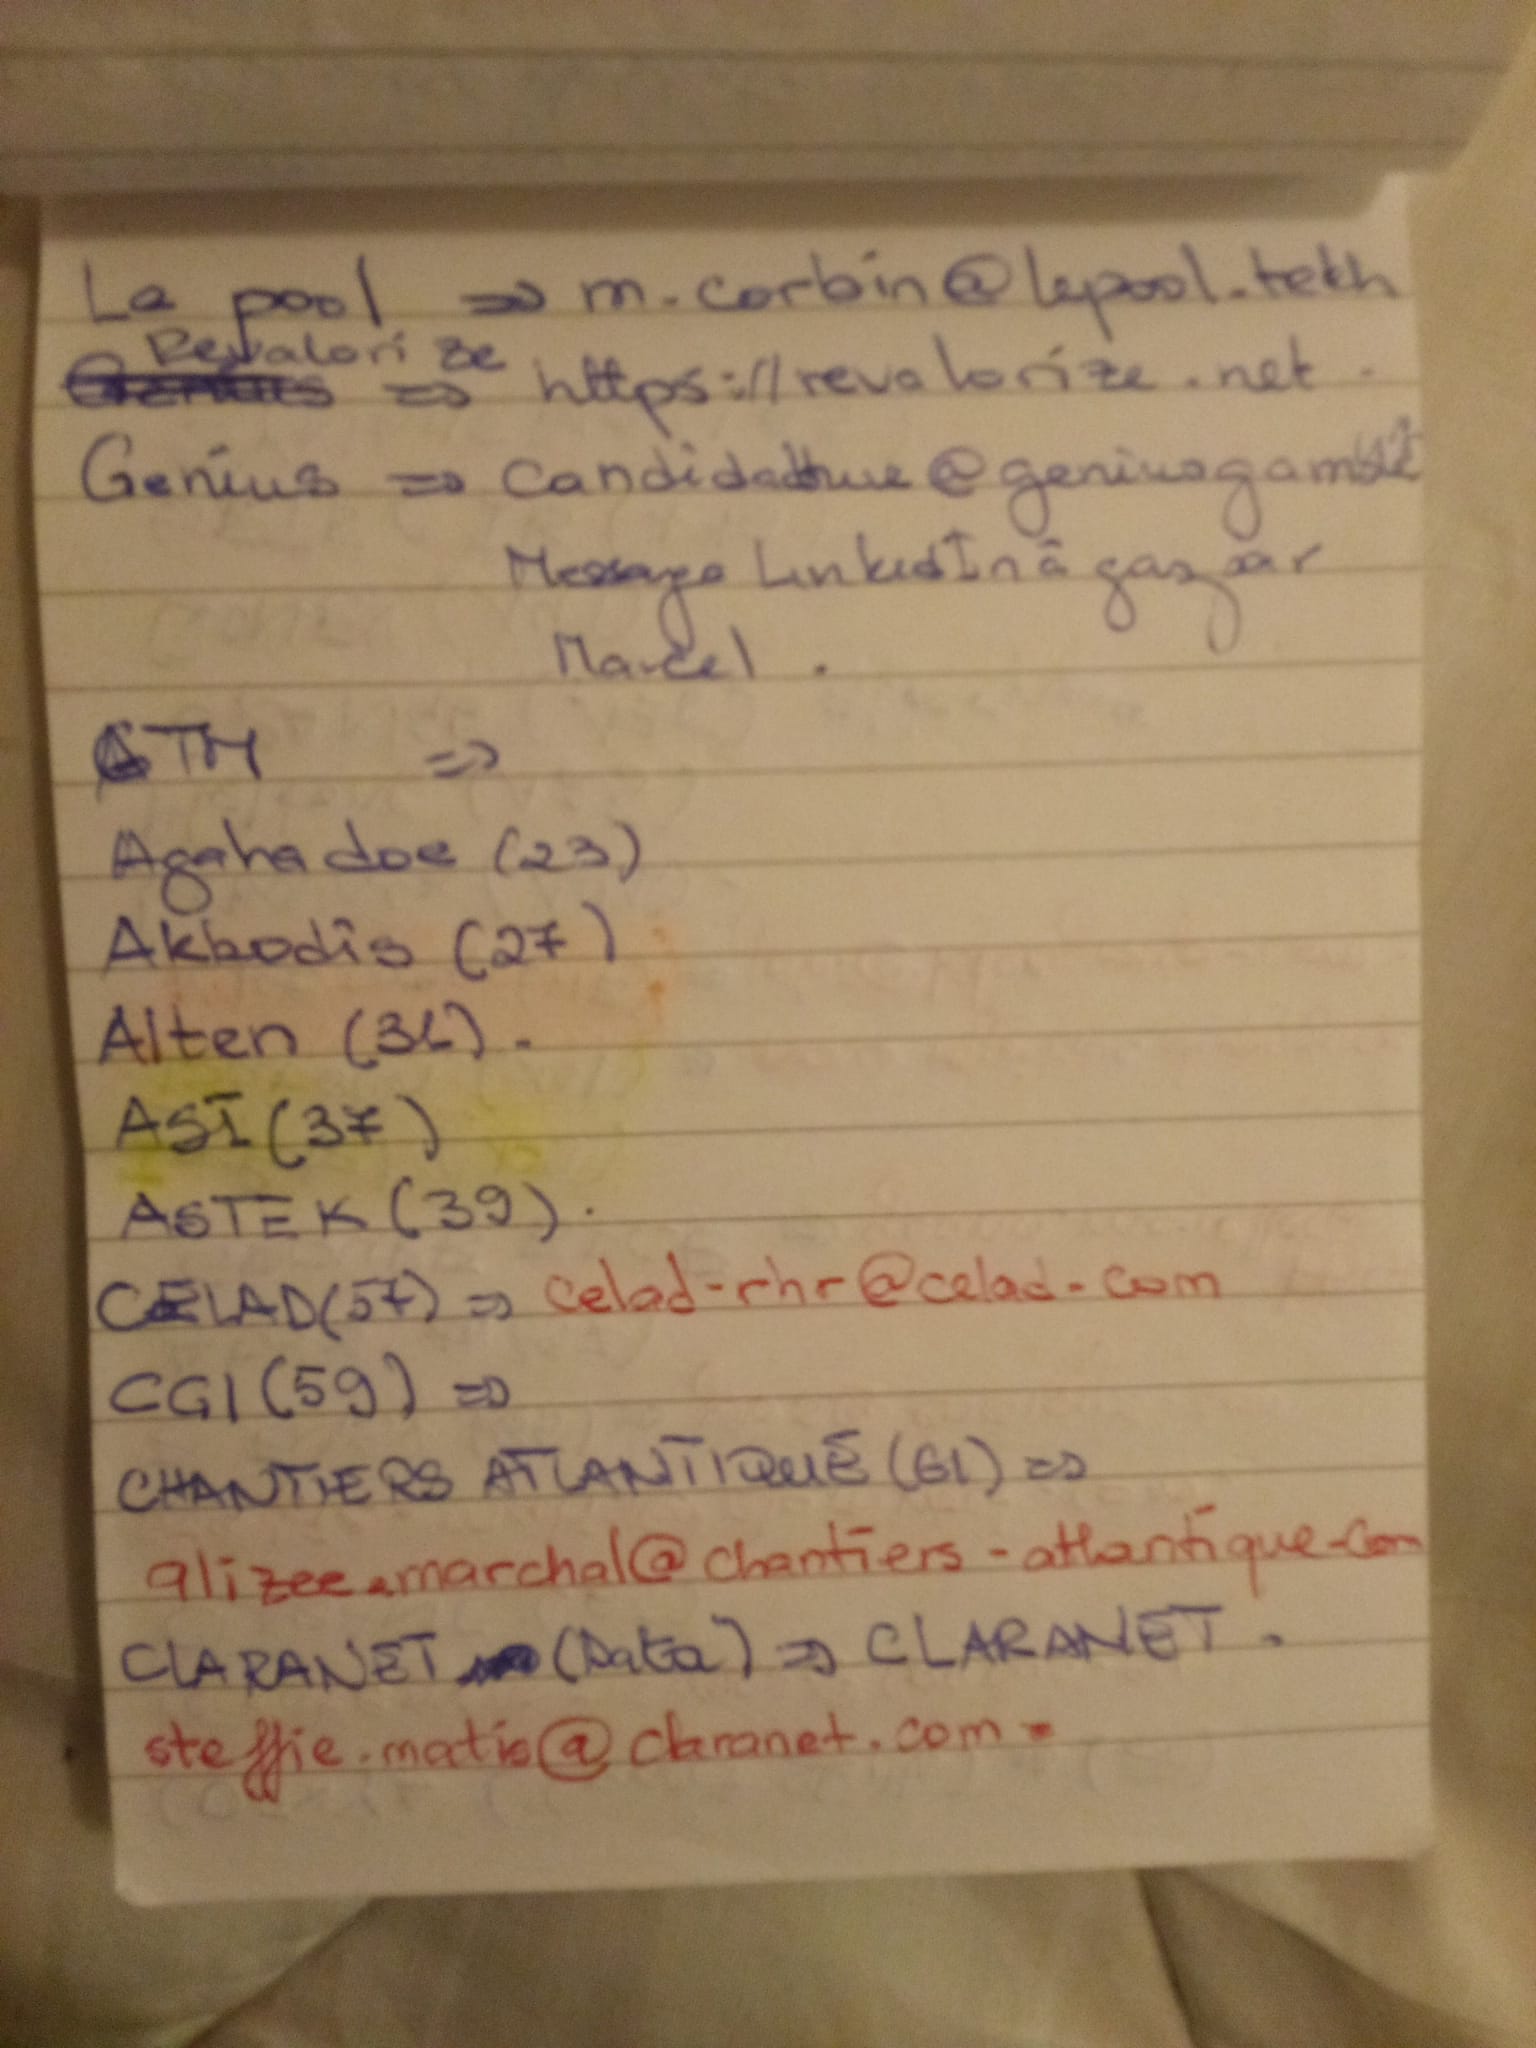 La pool => m.corbin@lepool.tekh
Revalorize => https://revalorize.net.
Genius => Candidature@geniusgamble
Message LinkedIn à gaspar
Marcel.
STM =>
Agahadoe (23)
Akkodis (27)
Alten (31).
ASI (37)
ASTEK (39).
CELAD (57) => celad-rhr@celad.com
CGI (59) =>
CHANTIERS ATLANTIQUE (61) =>
alizee.marchal@chantiers-atlantique.com
CLARANET (Data) => CLARANET.
steffie.matis@claranet.com